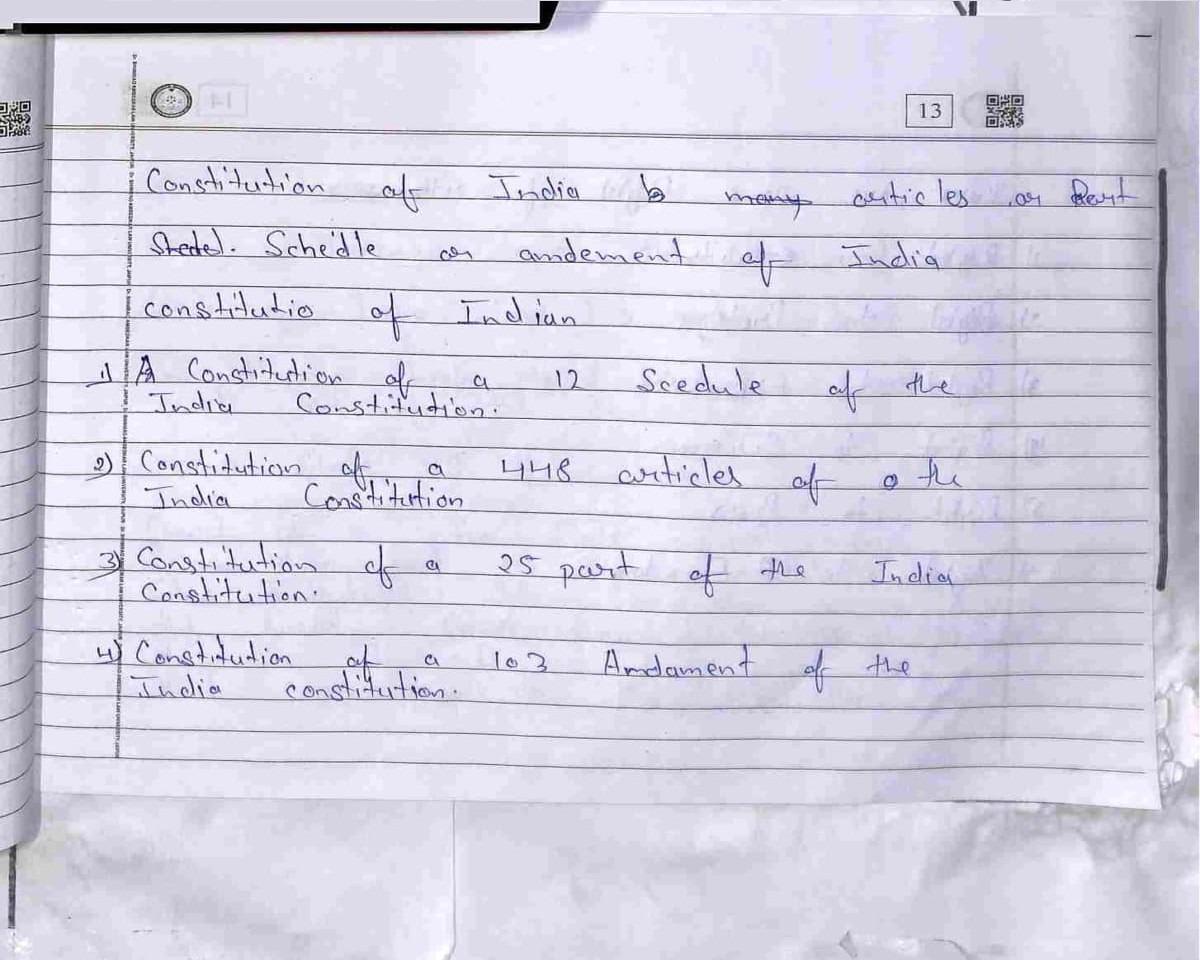 13
Constitution of India b many articles or Part
Stedel. Scheidle or amdement of India
constitutio of Indian
1) A Constitution of a 12 Scedule of the
India Constitution.
2) Constitution of a 448 articles of o the
India Constitution
3) Constitution of a 25 part of the India
Constitution.
4) Constitution of a 103 Amdament of the
India constitution.